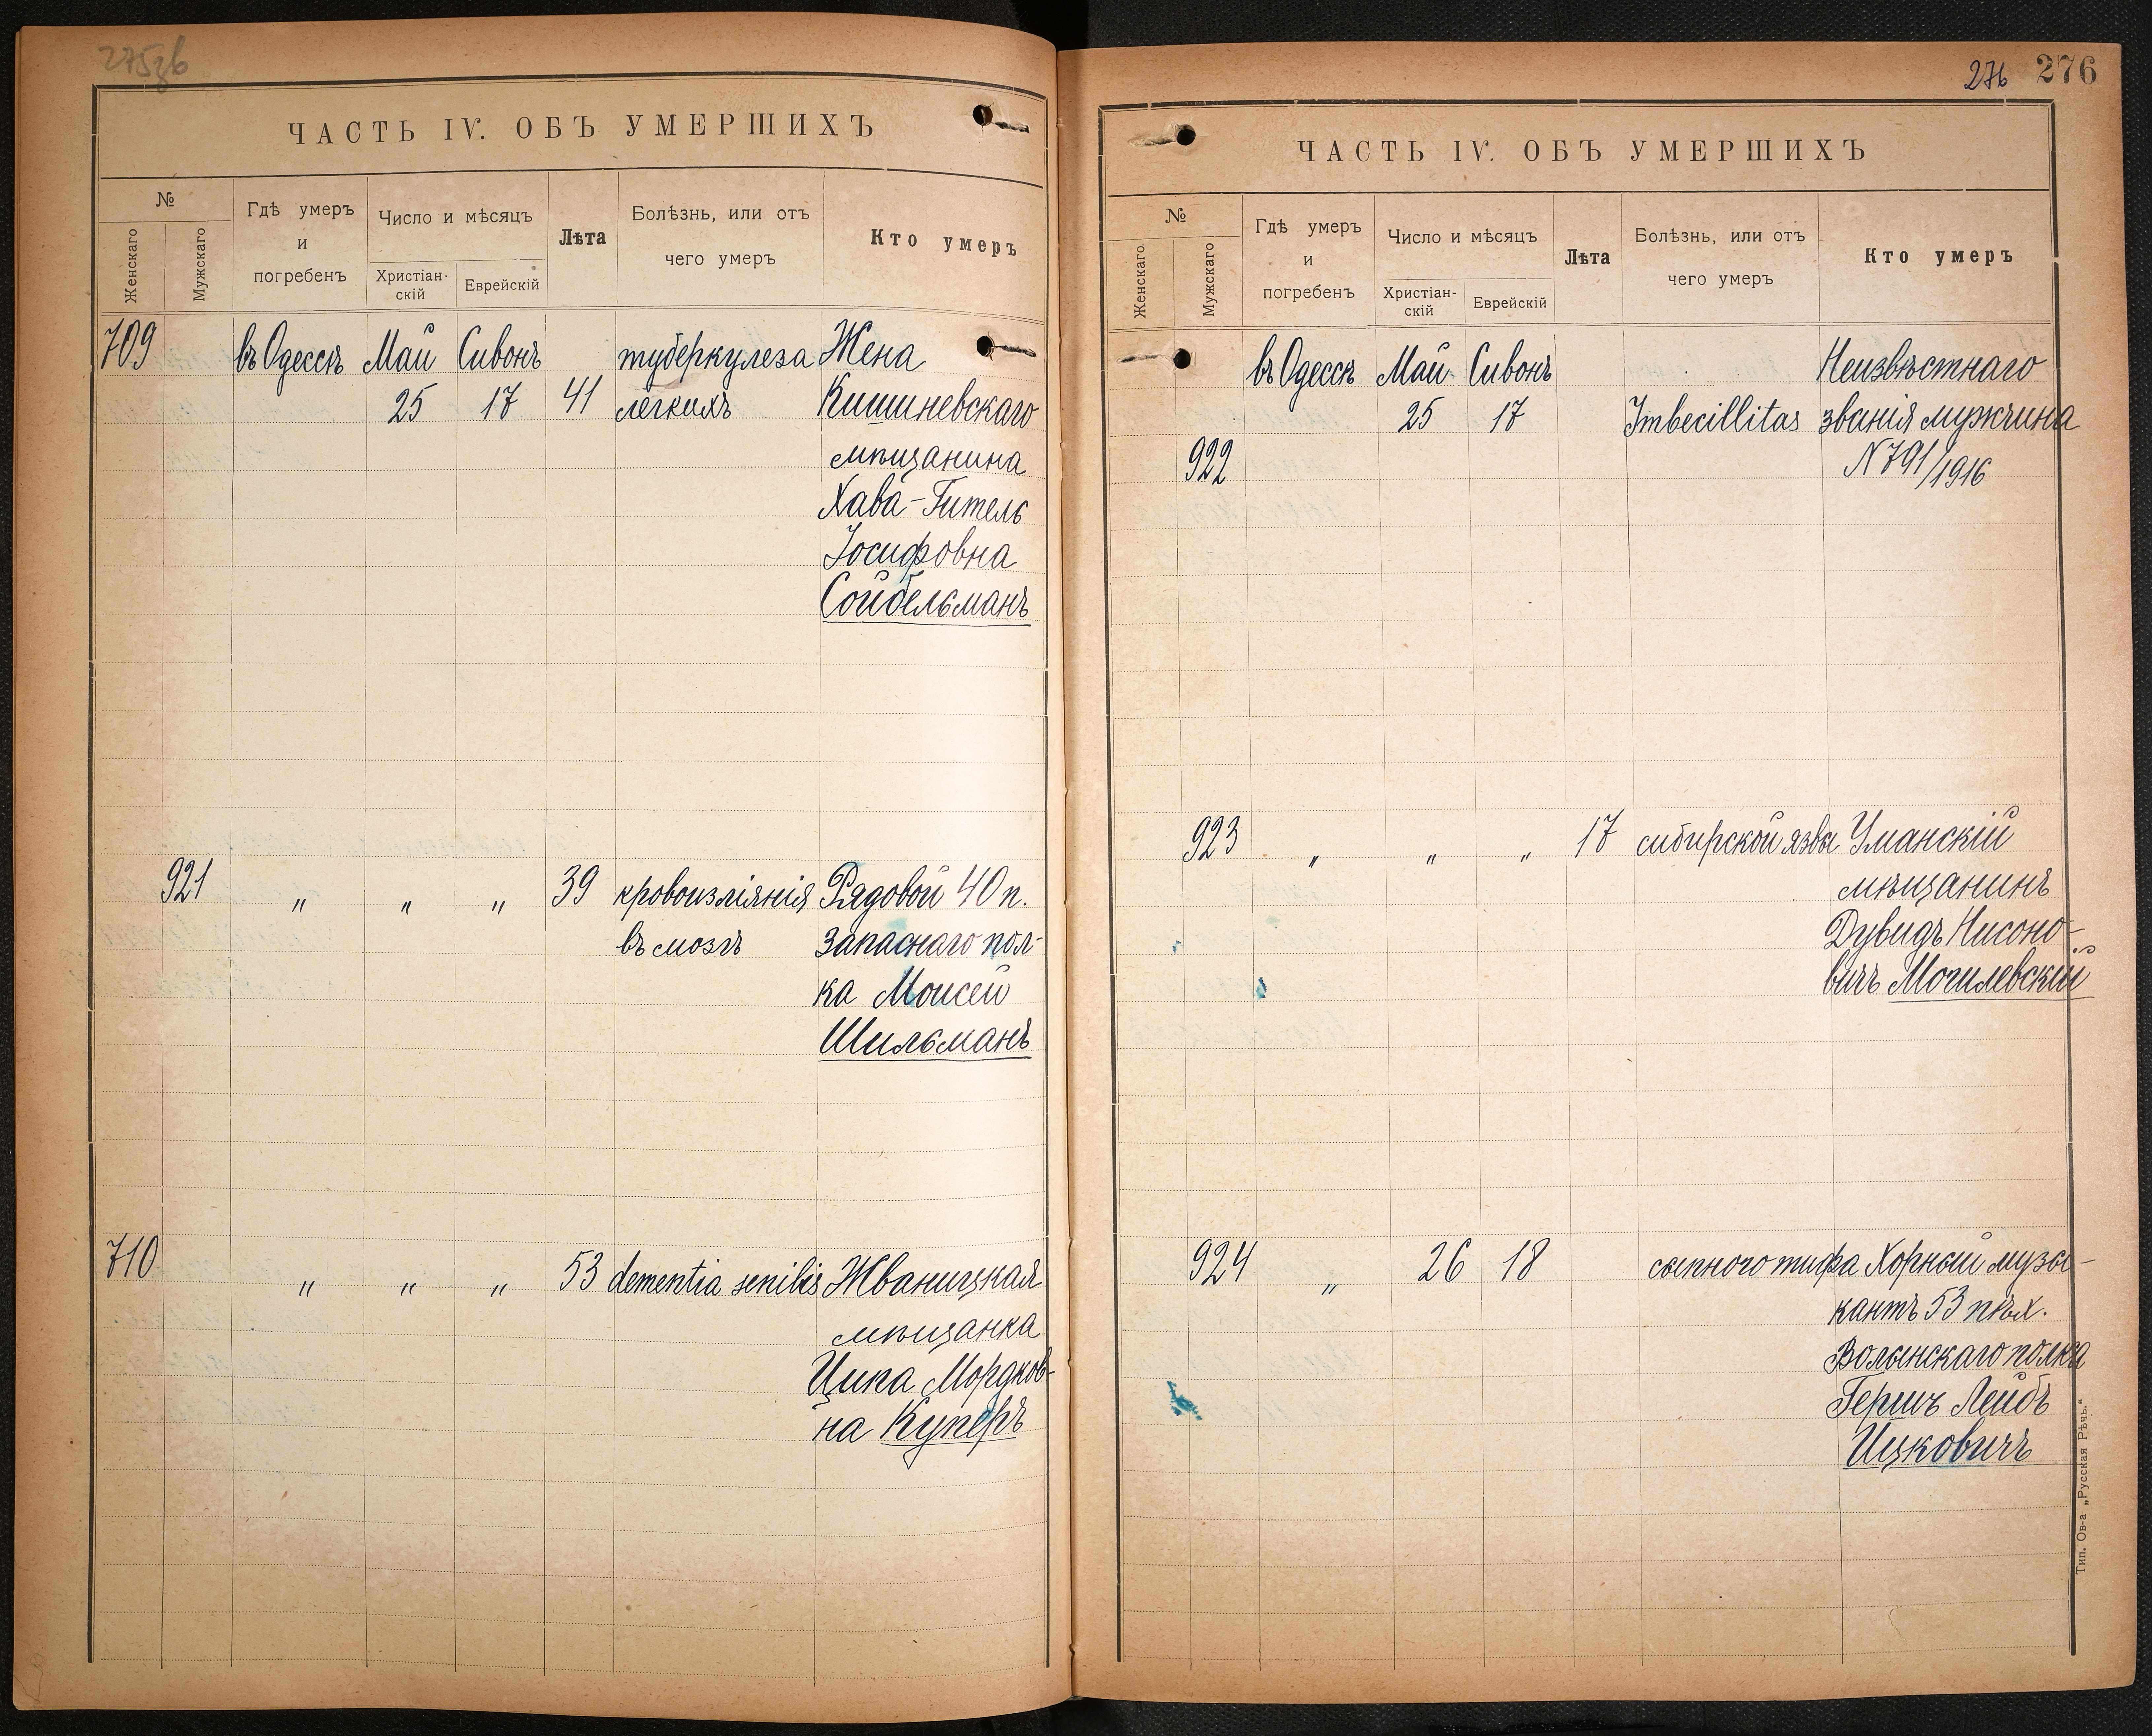 275зв
ЧАСТЬ IV. ОБЪ УМЕРШИХЪ
№
Женскаго
Мужскаго
Гдѣ умеръ
и
погребенъ
Число и мѣсяцъ
Христіан-
скій
Еврейскій
Лѣта
Болѣзнь, или отъ
чего умеръ
Кто умеръ
709 въ Одессѣ Май Сивонъ туберкулеза Жена
25 17 41 легкихъ Кишиневскаго
мѣщанина
Хава-Гитель
Іосифовна
Сойбельманъ
921 " " " 39 кровоизліянія Рядовой 40 п.
въ мозгъ запаснаго пол-
ка Моисей
Шильманъ
710 " " " 53 dementia senilis Жванецкая
мѣщанка
Ципа Мордков-
на Куперъ
276 276
ЧАСТЬ IV. ОБЪ УМЕРШИХЪ
№
Женскаго
Мужскаго
Гдѣ умеръ
и
погребенъ
Число и мѣсяцъ
Христіан-
скій
Еврейскій
Лѣта
Болѣзнь, или отъ
чего умеръ
Кто умеръ
въ Одессѣ Май Сивонъ Неизвѣстнаго
25 17 Imbecillitas званія мужчина
922 N 791/1916
923 " " " 17 сибирской язвы Уманскій
мѣщанинъ
Дувидъ Нисоно-
вичъ Могилевскій
924 " 26 18 сыпного тифа Хорный музы-
кантъ 53 пѣх.
Волынскаго полка
Гершъ Лейбъ
Ицковичъ
Тип. Ов-а „Русская Рѣчь."